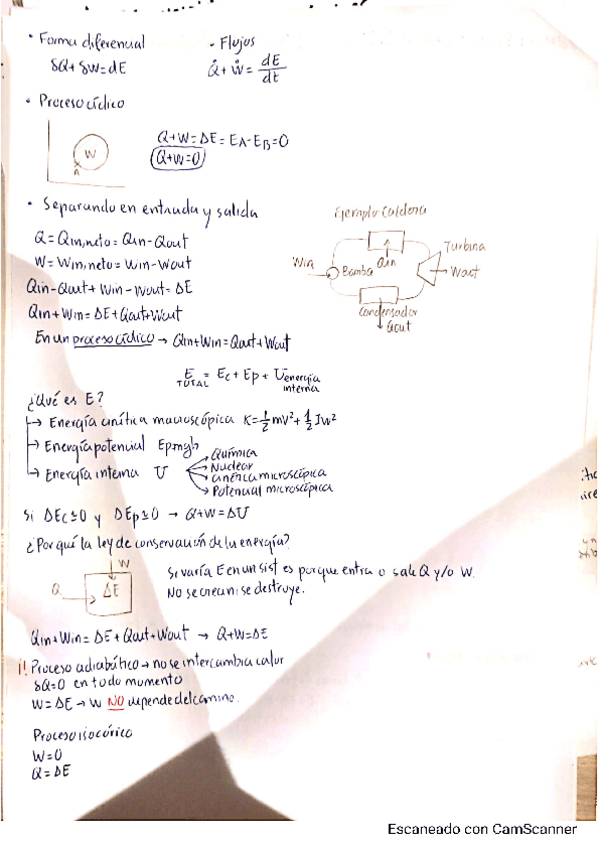 • Forma diferencial
δQ + δW = dE
- Flujos
Q̇ + Ẇ = dE/dt
• Proceso cíclico
W
A
Q + W = ΔE = EA - EB = 0
Q + W = 0
• Separando en entrada y salida
Q = Qin,neto = Qin - Qout
W = Win,neto = Win - Wout
Qin - Qout + Win - Wout = ΔE
Qin + Win = ΔE + Qout + Wout
En un proceso cíclico → Qin + Win = Qout + Wout
Ejemplo Caldera
Turbina
Win
Bomba
Qin
Wout
Condensador
Qout
E TOTAL = Ec + Ep + U energía interna
¿Qué es E?
→ Energía cinética macroscópica K = 1/2 mv² + 1/2 Iw²
→ Energía potencial Ep mgh
→ Energía interna U
Química
Nuclear
cinética microscópica
Potencial microscópica
Si ΔEc ≅ 0 y ΔEp ≅ 0 → Q + W = ΔU
¿Por qué la ley de conservación de la energía?
W
Q
ΔE
Si varía E en un sist es porque entra o sale Q y/o W.
No se crea ni se destruye.
Qin + Win = ΔE + Qout + Wout → Q + W = ΔE
¡! Proceso adiabático → no se intercambia calor
δQ = 0 en todo momento
W = ΔE → W NO depende del camino.
Proceso isocórico
W = 0
Q = ΔE
Escaneado con CamScanner